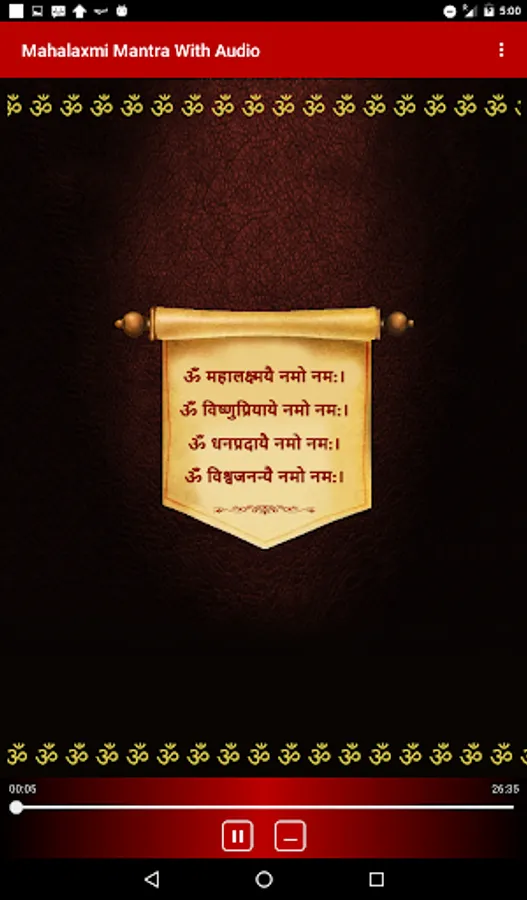 5:00
Mahalaxmi Mantra With Audio
ॐ ॐ ॐ ॐ ॐ ॐ ॐ ॐ ॐ ॐ ॐ ॐ ॐ ॐ ॐ ॐ ॐ ॐ
ॐ महालक्ष्मयै नमो नमः।
ॐ विष्णुप्रियाये नमो नमः।
ॐ धनप्रदायै नमो नमः।
ॐ विश्वजनन्यै नमो नमः।
ॐ ॐ ॐ ॐ ॐ ॐ ॐ ॐ ॐ ॐ ॐ ॐ ॐ ॐ ॐ ॐ ॐ ॐ
00:05 26:35